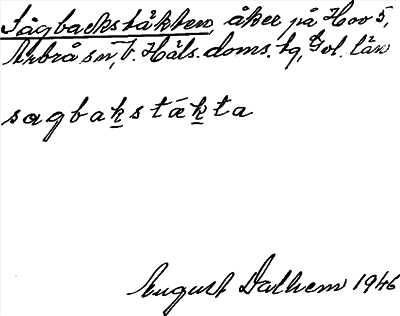 Sågbackstäkten, åker på Hov 5,
Arbrå sn, V. Häls. doms. tg, Gvl. län
sagbakstäkta
August Dalhem 1946